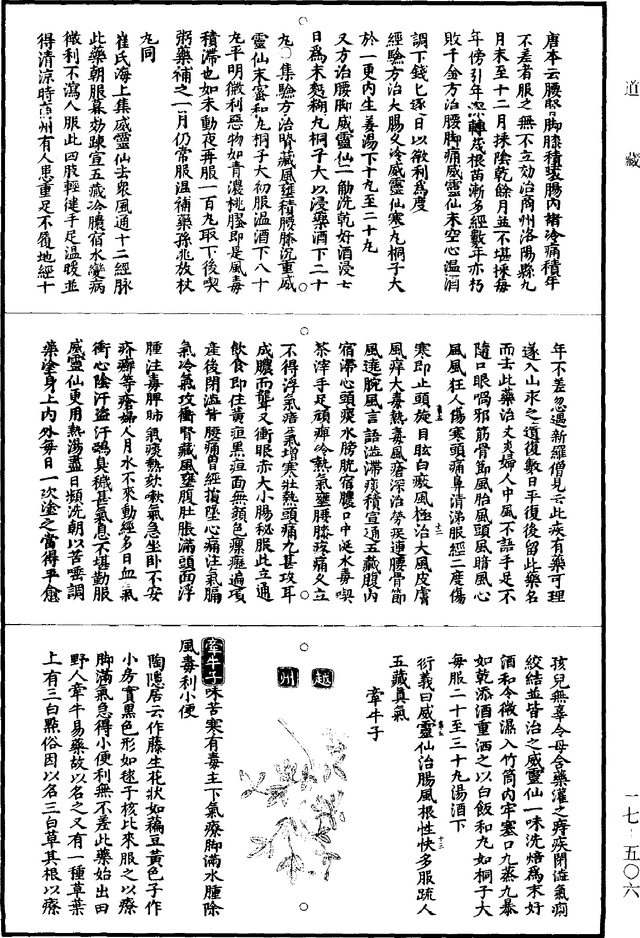 道藏
唐本云腰腎脚膝積聚腸內諸冷痛積年
不差者服之無不立効治商州洛陽縣九
月末至十二月採陰乾餘月並不堪採每
年傍引年深轉茂根苗漸多經數年亦朽
敗千金方治腰脚痛威靈仙末空心溫酒
調下錢匕逐日以微利爲度
經驗方治大腸久冷威靈仙蜜丸桐子大
於一更內生薑湯下十丸至二十丸
又方治腰脚威靈仙一觔洗乾好酒浸七
日爲末麪糊丸桐子大以浸藥酒下二十
丸○集驗方治腎藏風壅積腰膝沉重威
靈仙末蜜和丸桐子大初服溫酒下八十
丸平明微利惡物如青濃桃膠即是風毒
積滯也如未動夜再服一百丸取下後喫
粥藥補之一月仍常服溫補藥孫兆放杖
丸同
崔氏海上集威靈仙去衆風通十二經脉
此藥朝服暮効踈宣五藏冷膿宿水變病
微利不瀉人服此四肢輕健手足溫暖並
得清涼時商州有人患重足不履地經十
年不差忽遇新羅僧見云此疾有藥可理
遂入山求之遣復數日平復後留此藥名
而去此藥治丈夫婦人中風不語手足不
隨口眼喎邪筋骨節風胎風頭風暗風心
風風狂人傷寒頭痛鼻清涕服經二度傷
寒即止頭旋目眩白癜風極治大風皮膚
風痒大毒熱毒風瘡深治勞疾連腰骨節
風遶腕風言語澁滯痰積宣通五藏腹內
宿滯心頭痰水膀胱宿膿口中涎水毒喫
茶滓手足頑痺冷熱氣壅腰膝疼痛久立
不得浮氣瘴氣增寒壯熱頭痛尤甚攻耳
成膿而聾又衝眼赤大小腸秘服此立通
飲食即住黃疸黑疸面無顏色瘰癧遍項
產後閉澁⿰腰痛曾經損墜心痛注氣膈
氣冷氣攻衝腎藏風壅腹肚脹滿頭面浮
腫注毒脾肺氣痰熱欬嗽氣急坐卧不安
疥癬等瘡婦人月水不來動經多日血氣
衝心陰汗盜汗鵶臭穢甚氣息不堪勤服
威靈仙更用熱湯盡日頻洗朝以苦唾調
藥塗身上內外每日一次塗之當得平愈
孩兒無辜令母含藥灌之痔疾閉澁氣痢
絞結並皆治之威靈仙一味洗焙爲末好
酒和令微濕入竹筒內牢塞口九蒸九暴
如乾添酒重洒之以白飯和丸如桐子大
每服二十至三十丸湯酒下
衍義曰威靈仙治腸風根性快多服疏人
五藏真氣
牽牛子
越州
牽牛子味苦寒有毒主下氣療脚滿水腫除
風毒利小便
陶隱居云作藤生花狀如藊豆黃色子作
小房實黑色形如毬子核比來服之以療
脚滿氣急得小便利無不差此藥始出田
野人牽牛易藥故以名之又有一種草葉
上有三白點俗因以名三白草其根以療
一七·五〇六